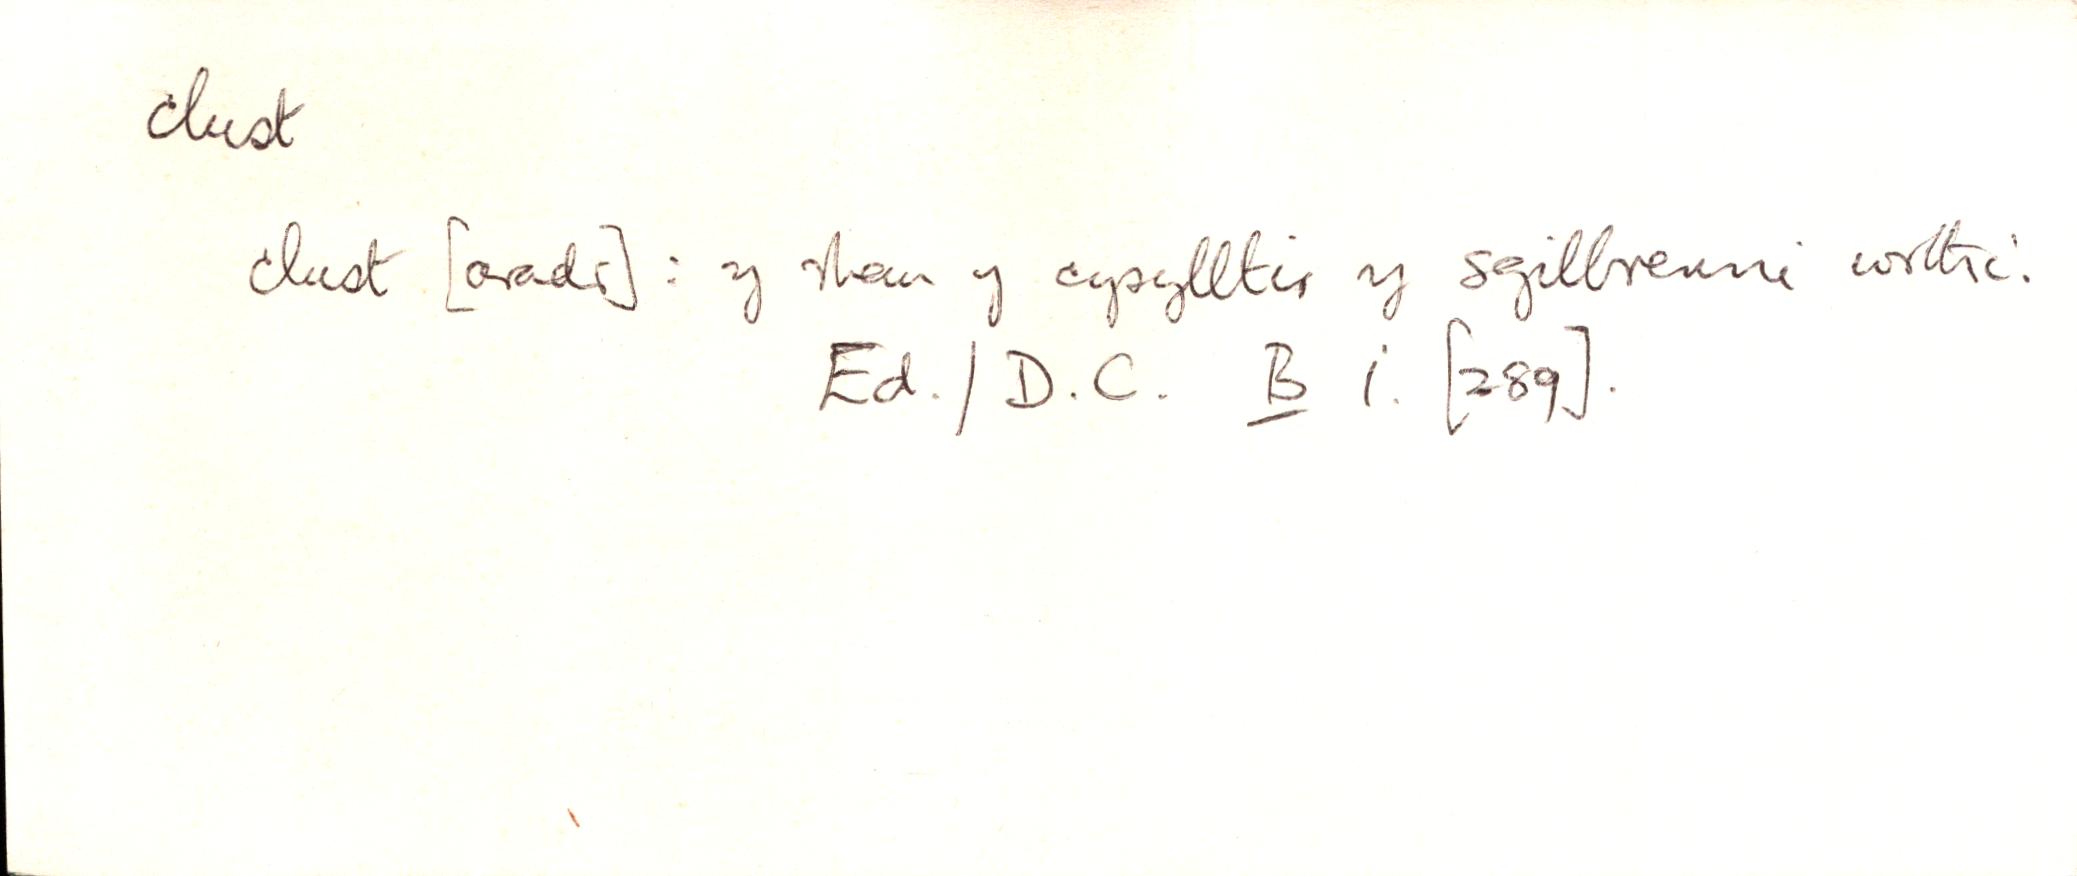 clust
clust [aradr]: y rhan y cysylltir y sgilbrenni wrthi.
Ed. / D.C. B i. [289].